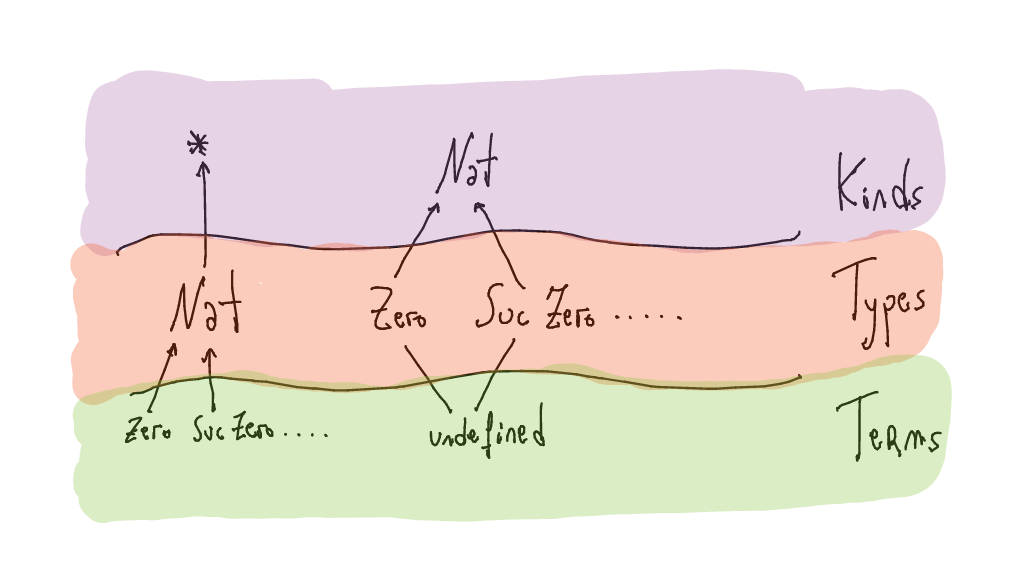 *
Nat
Kinds
Nat
Zero
Suc Zero .....
Types
Zero
Suc Zero ....
undefined
Terms